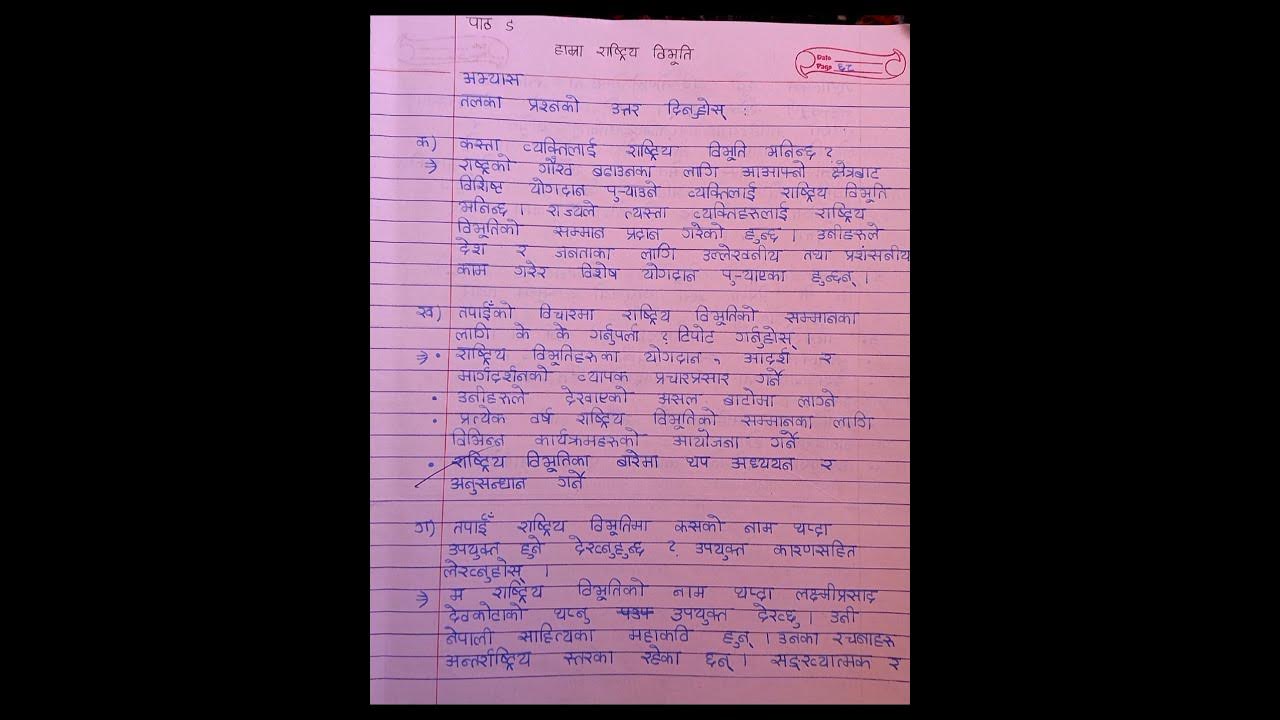 पाठ ८
हाम्रा राष्ट्रिय विभूति
Date
Page ६८
अभ्यास
तलका प्रश्नको उत्तर दिनुहोस् :
क) कस्ता व्यक्तिलाई राष्ट्रिय विभूति भनिन्छ ?
→ राष्ट्रको गौरव बढाउनका लागि आआफ्नो क्षेत्रबाट
विशिष्ट योगदान पुऱ्याउने व्यक्तिलाई राष्ट्रिय विभूति
भनिन्छ । राज्यले त्यस्ता व्यक्तिहरुलाई राष्ट्रिय
विभूतिको सम्मान प्रदान गरेको हुन्छ । उनीहरुले
देश र जनताका लागि उल्लेखनीय तथा प्रशंसनीय
काम गरेर विशेष योगदान पुऱ्याएका हुन्छन् ।
ख) तपाईँको विचारमा राष्ट्रिय विभूतिको सम्मानका
लागि के के गर्नुपर्ला ? टिपोट गर्नुहोस् ।
→ • राष्ट्रिय विभूतिहरुका योगदान , आदर्श र
मार्गदर्शनको व्यापक प्रचारप्रसार गर्ने
• उनीहरुले देखाएको असल बाटोमा लाग्ने
• प्रत्येक वर्ष राष्ट्रिय विभूतिको सम्मानका लागि
विभिन्न कार्यक्रमहरुको आयोजना गर्ने
• राष्ट्रिय विभूतिका बारेमा थप अध्ययन र
अनुसन्धान गर्ने
ग) तपाईँ राष्ट्रिय विभूतिमा कसको नाम थप्दा
उपयुक्त हुने देख्नुहुन्छ ? उपयुक्त कारणसहित
लेख्नुहोस् ।
→ म राष्ट्रिय विभूतिको नाम थप्दा लक्ष्मीप्रसाद
देवकोटाको थप्नु उपयुक्त देख्छु । उनी
नेपाली साहित्यका महाकवि हुन् । उनका रचनाहरु
अन्तर्राष्ट्रिय स्तरका रहेका छन् । सङ्ख्यात्मक र